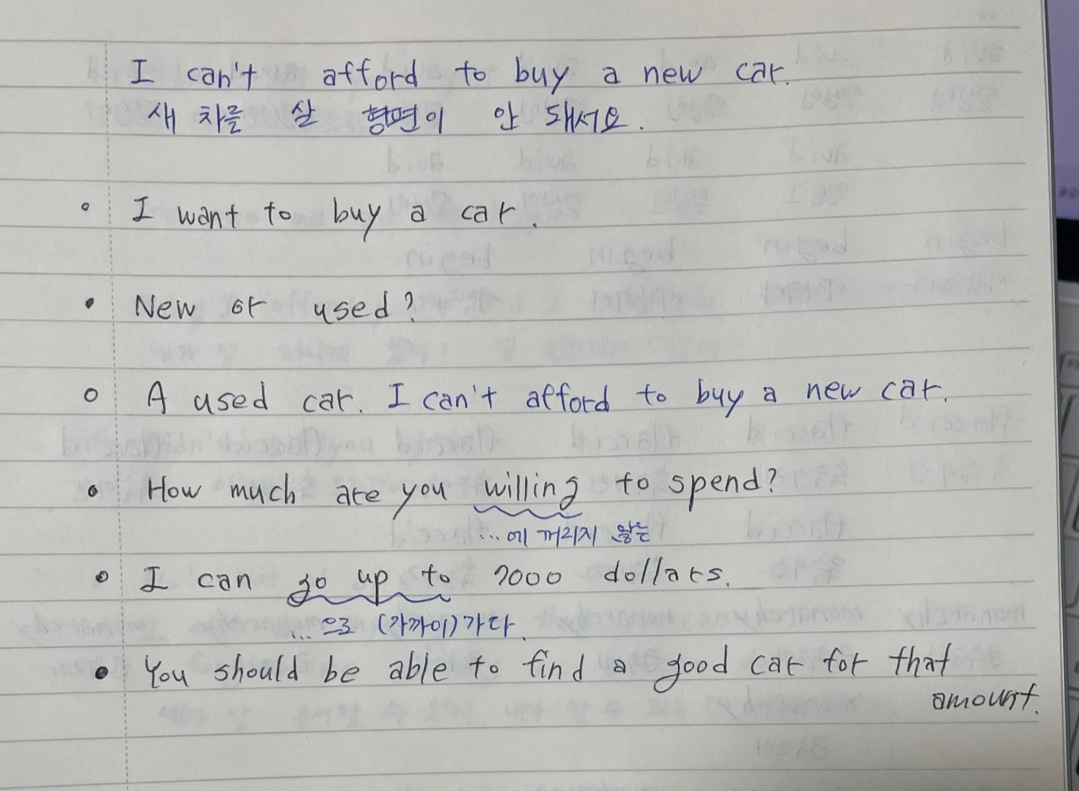 I can't afford to buy a new car.
새 차를 살 형편이 안 돼서요.
I want to buy a car.
New or used?
A used car. I can't afford to buy a new car.
How much are you willing to spend?
...에 꺼리지 않는
I can go up to 7000 dollars.
...으로 (가까이) 가다.
You should be able to find a good car for that
amount.